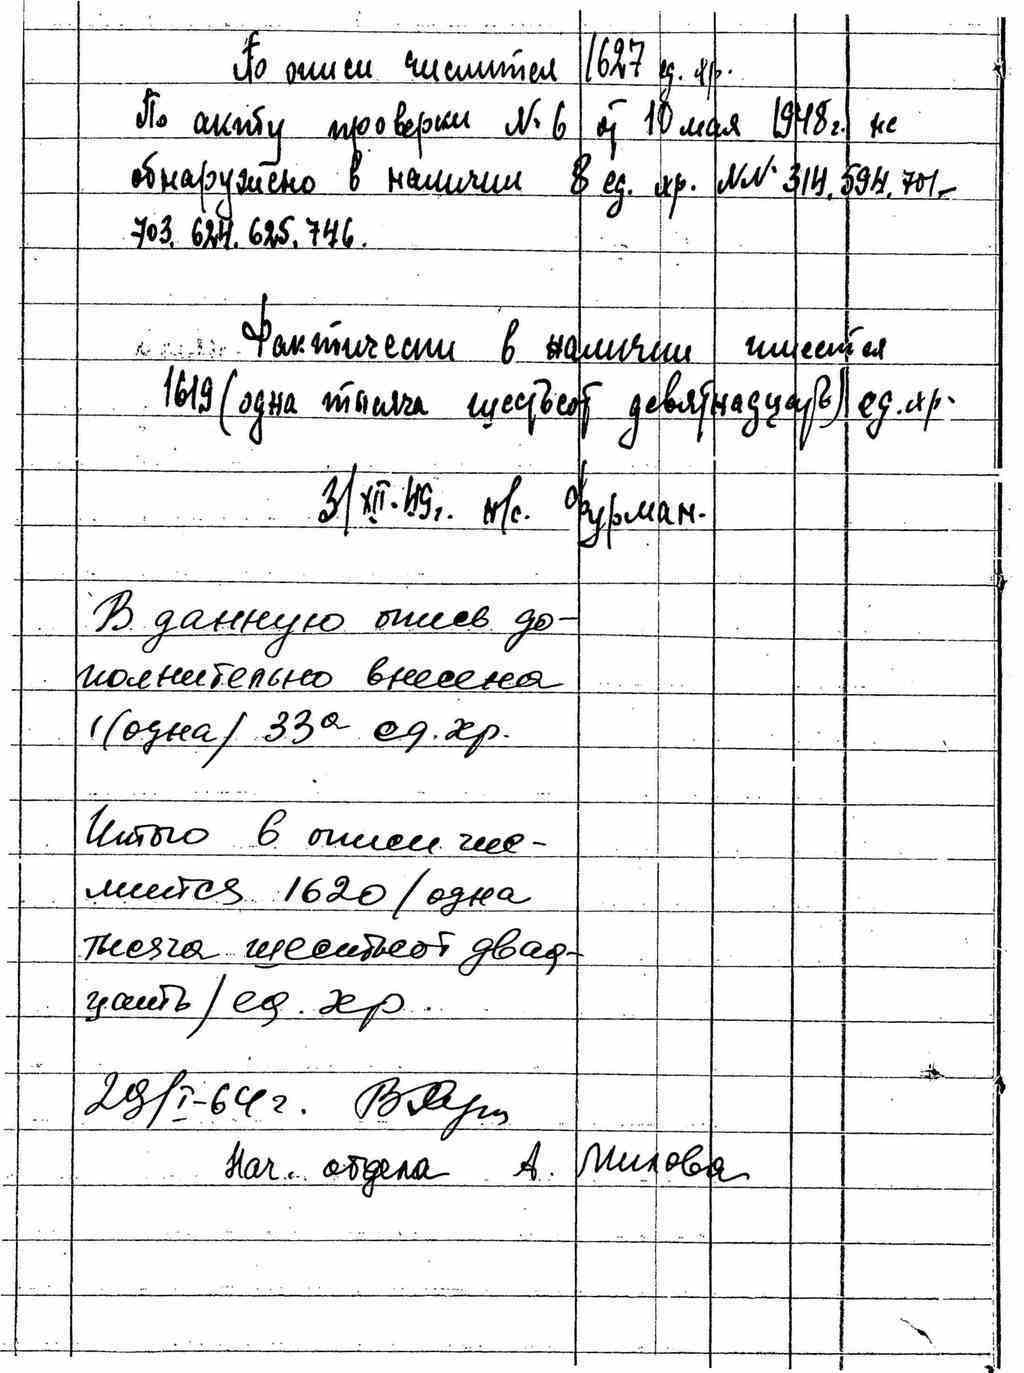 По описи числится 1627 ед. хр.
По акту проверки № 6 от 10 мая 1948 г. не
обнаружено в наличии 8 ед. хр. №№ 314. 594. 701-
703. 624. 625. 746.
Фактически в наличии имеется
1619 (одна тысяча шестьсот девятнадцать) ед. хр.
3/XII-49г. н/с. Фурман.
В данную опись до-
полнительно внесена
1 (одна) 33а ед. хр.
Итого в описи чис-
лится 1620 /одна
тысяча шестьсот двад-
цать/ ед. хр.
29/I-64 г.
Нач. отдела А. Милова